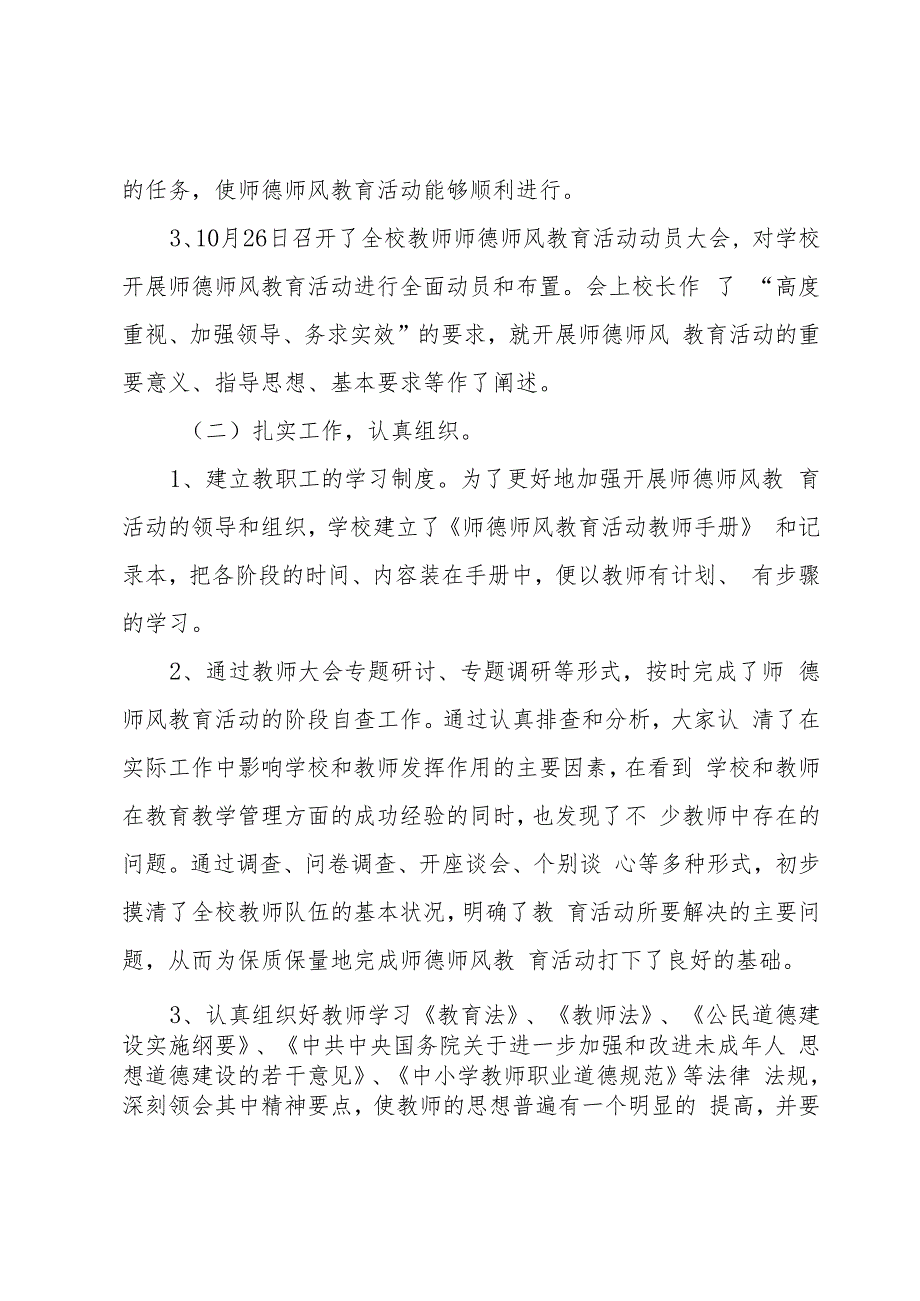 的任务，使师德师风教育活动能够顺利进行。
3、10月26日召开了全校教师师德师风教育活动动员大会，对学校
开展师德师风教育活动进行全面动员和布置。会上校长作 了 “高度
重视、加强领导、务求实效”的要求，就开展师德师风 教育活动的重
要意义、指导思想、基本要求等作了阐述。
（二）扎实工作，认真组织。
1、建立教职工的学习制度。为了更好地加强开展师德师风教 育
活动的领导和组织，学校建立了《师德师风教育活动教师手册》 和记
录本，把各阶段的时间、内容装在手册中，便以教师有计划、 有步骤
的学习。
2、通过教师大会专题研讨、专题调研等形式，按时完成了师 德
师风教育活动的阶段自查工作。通过认真排查和分析，大家认 清了在
实际工作中影响学校和教师发挥作用的主要因素，在看到 学校和教师
在教育教学管理方面的成功经验的同时，也发现了不 少教师中存在的
问题。通过调查、问卷调查、开座谈会、个别谈 心等多种形式，初步
摸清了全校教师队伍的基本状况，明确了教 育活动所要解决的主要问
题，从而为保质保量地完成师德师风教 育活动打下了良好的基础。
3、认真组织好教师学习《教育法》、《教师法》、《公民道德建
设实施纲要》、《中共中央国务院关于进一步加强和改进未成年人 思
想道德建设的若干意见》、《中小学教师职业道德规范》等法律 法规，
深刻领会其中精神要点，使教师的思想普遍有一个明显的 提高，并要